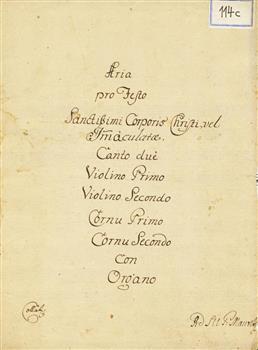 114c
Aria
pro Festo
Sanctissimi Corporis Christi, vel
Immaculatæ.
Canto due
Violino Primo
Violino Secondo
Cornu Primo
Cornu Secondo
Con
Organo